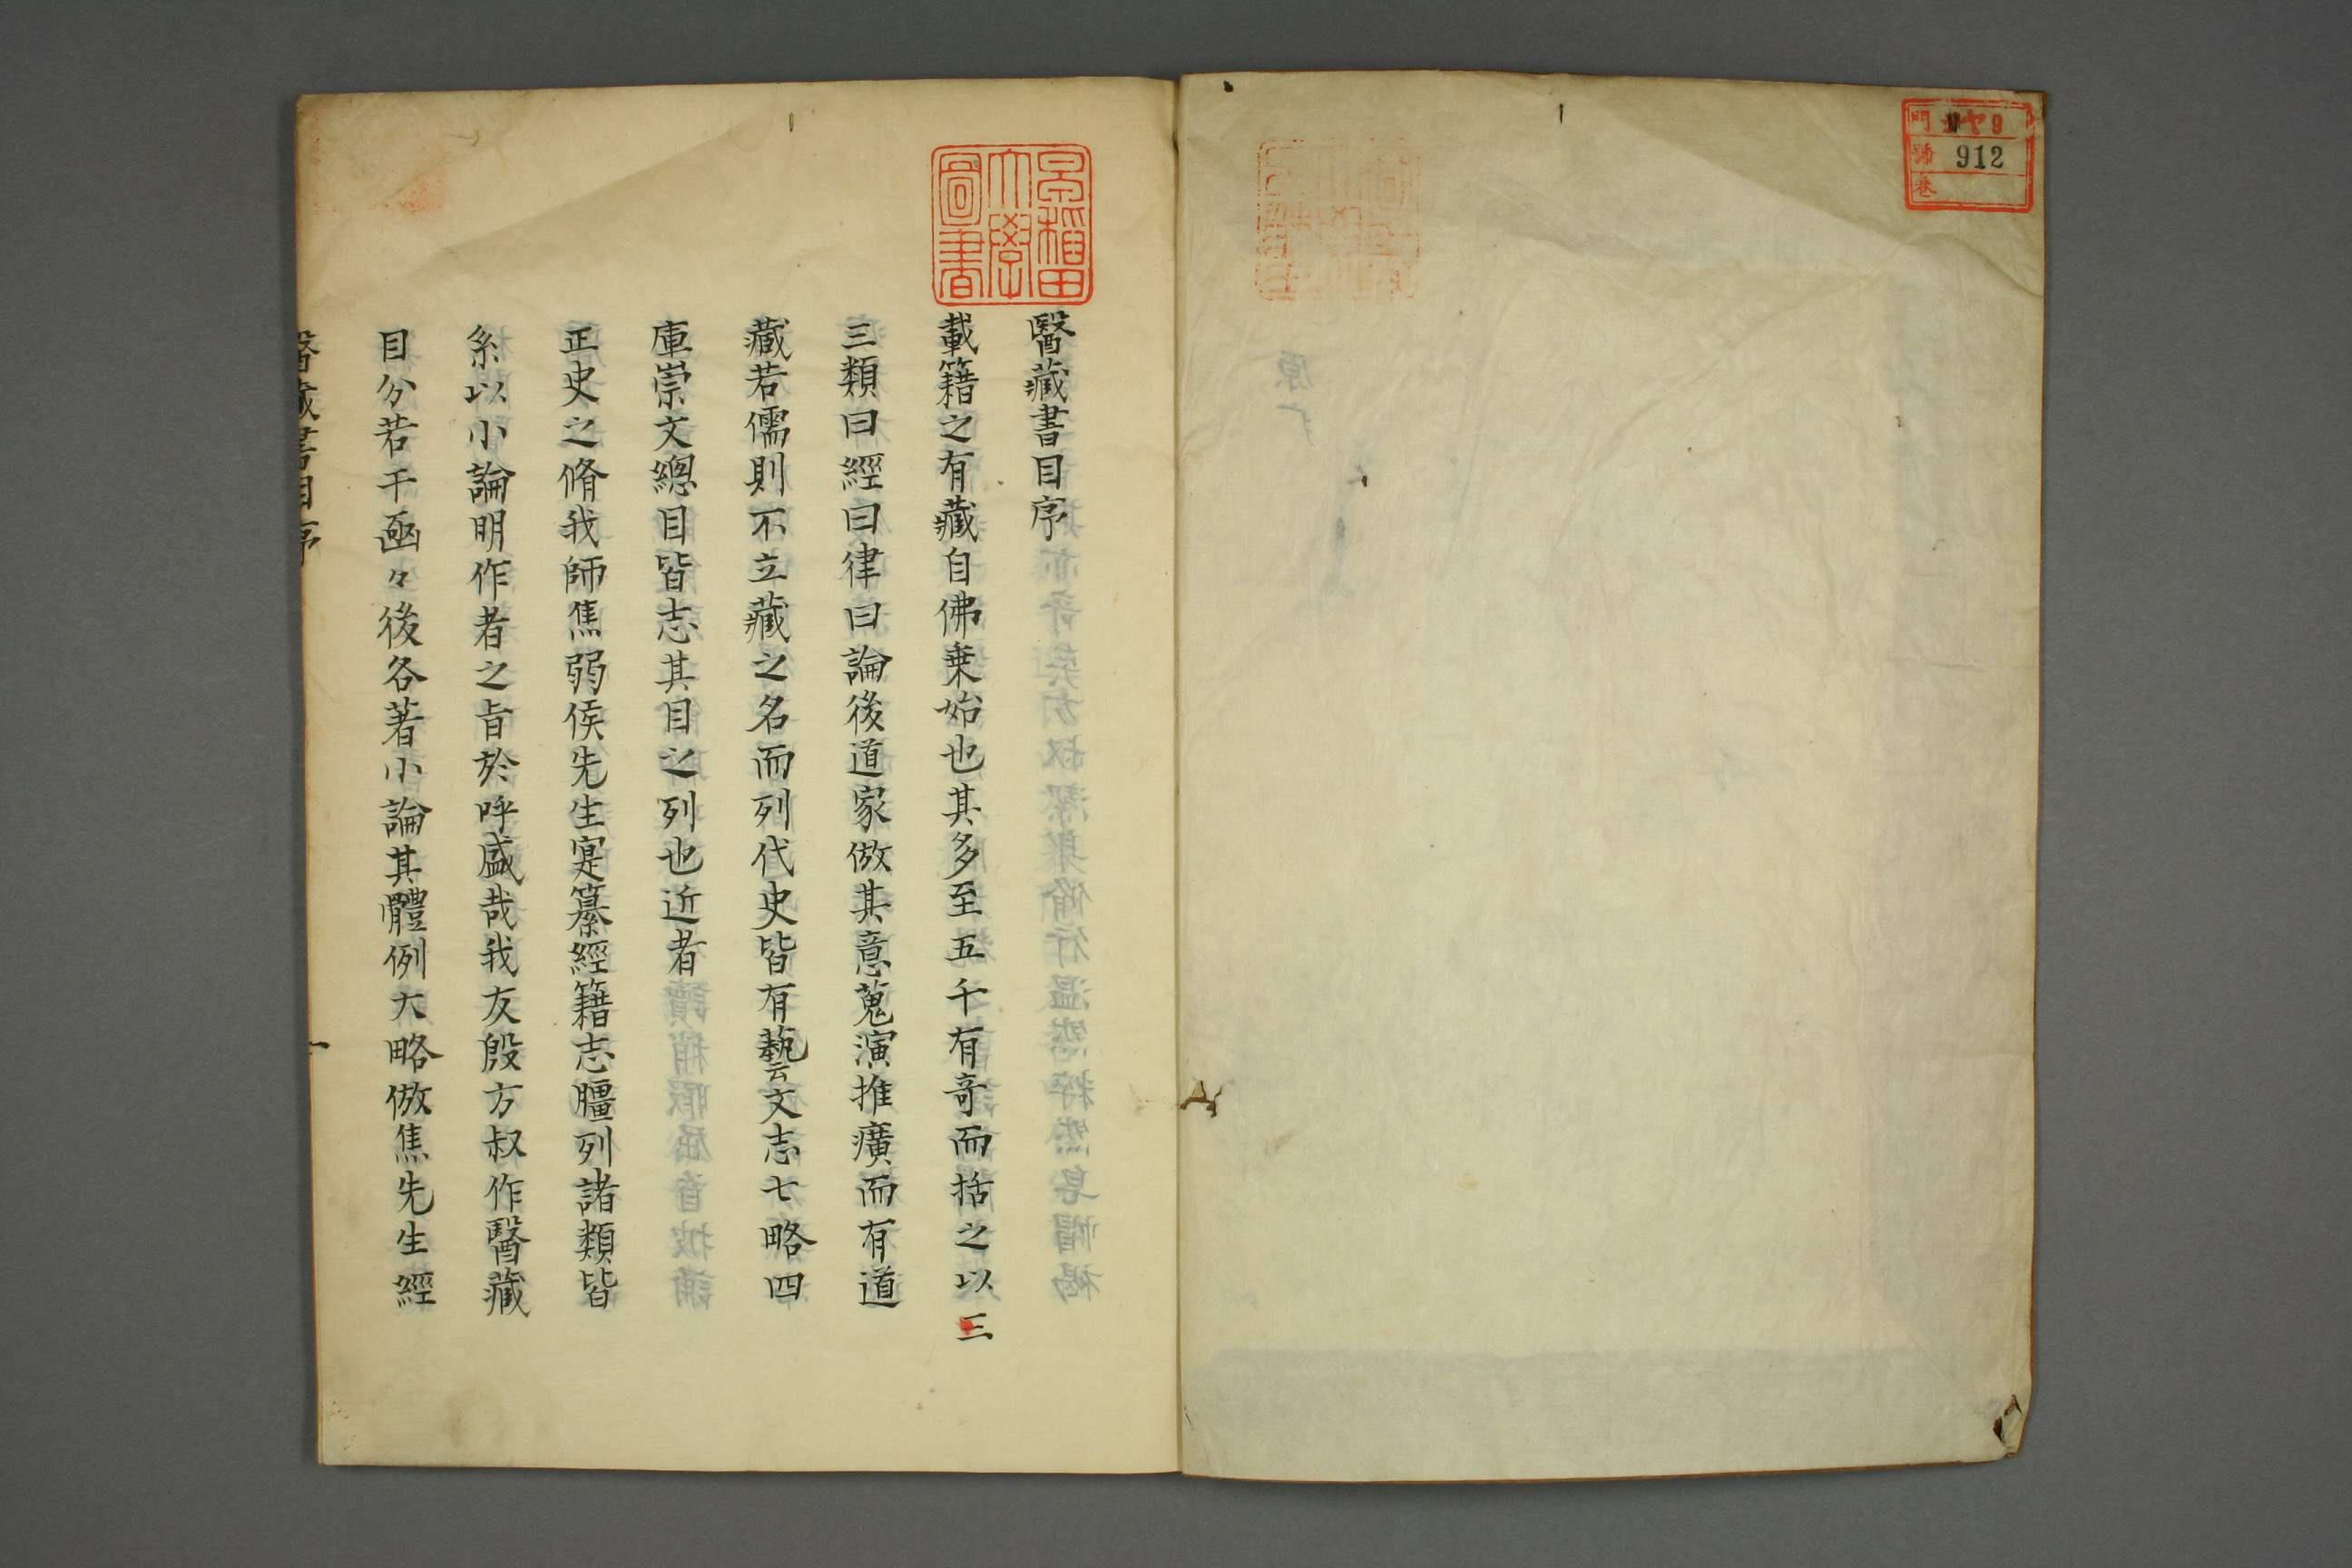 門 ヤ9
號 912
巻
早稲田大學圖書
醫藏書目序
載籍之有藏自佛乗始也其多至五千有奇而括之以三
三類曰經曰律曰論後道家倣其意蒐演推廣而有道
藏若儒則不立藏之名而列代史皆有藝文志七略四
庫崇文總目皆志其目之列也近者
正史之脩我師焦弱侯先生寔纂經籍志臚列諸類皆
系以小論明作者之旨於呼盛哉我友殷方叔作醫藏
目分若干凾々後各著小論其體例大略倣焦先生經
醫藏書目序
一